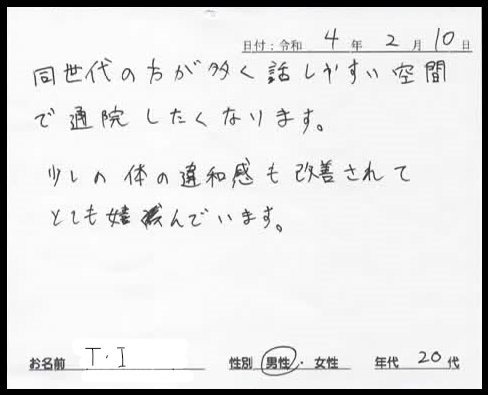 日付：令和 4 年 2 月 10 日
同世代の方が多く話しやすい空間
で通院したくなります。
少しの体の違和感も改善されて
とても喜んでいます。
お名前 T・I 性別 男性・女性 年代 20 代